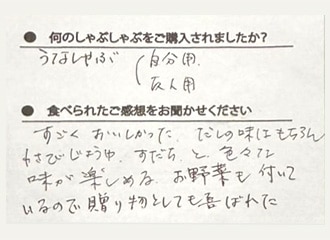 ● 何のしゃぶしゃぶをご購入されましたか？
うなしゃぶ（自分用.
友人用
● 食べられたご感想をお聞かせください
すごくおいしかった. だしの味はもちろん
わさびじょうゆ. すだち. と. 色々な
味が楽しめる. お野菜も付いて
いるので贈り物としても喜ばれた